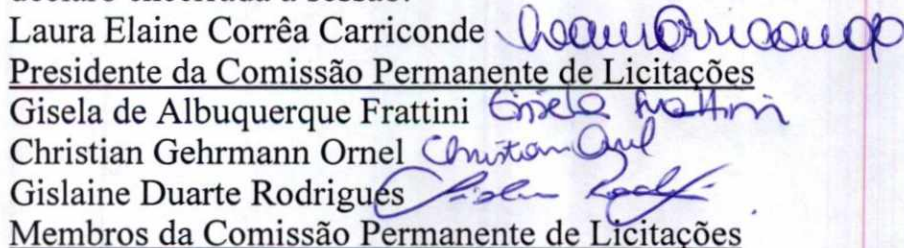 declaro encerrada a sessão.
Laura Elaine Corrêa Carriconde
Presidente da Comissão Permanente de Licitações
Gisela de Albuquerque Frattini Gisela Frattini
Christian Gehrmann Ornel Christian Ornel
Gislaine Duarte Rodrigues
Membros da Comissão Permanente de Licitações